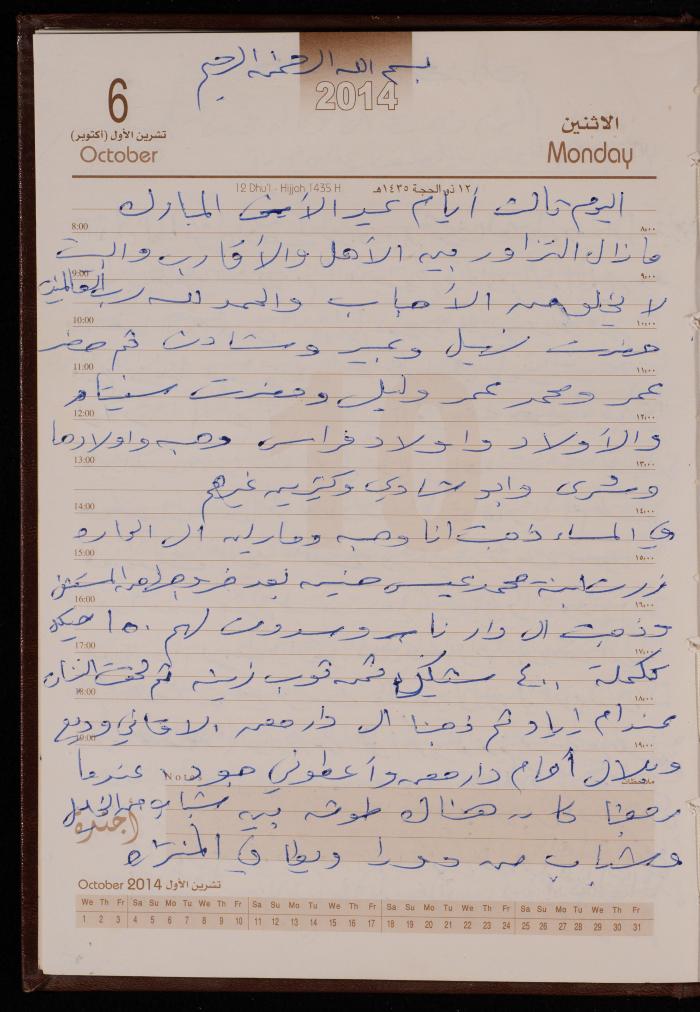 بسم الله الرحمن الرحيم
2014
6
تشرين الأول (أكتوبر)
October
الاثنين
Monday
12 Dhu'l - Hijjah 1435 H
١٢ ذو الحجة ١٤٣٥هـ
اليوم ثالث أيام عيد الأضحى المبارك
8:00 ٨،٠٠
ما زال التزاور بين الأهل والأقارب والبيت
9:00 ٩،٠٠
لا يخلو من الأحباب والحمد لله رب العالمين
10:00 ١٠،٠٠
حضرت نهيل وعبير وشادن ثم حضر
11:00 ١١،٠٠
عمر ومحمد عمر وليل وحضرت
12:00 ١٢،٠٠
والأولاد واولاد فراس وهبه واولادها
13:00 ١٣،٠٠
وبشرى وابو شادي وكثيرين غيرهم
14:00 ١٤،٠٠
في المساء ذهبت انا وهبه ومارلين الى الحاره
15:00 ١٥،٠٠
زرت ابنة محمد عيسى بعد خروجها من المستشفى
16:00 ١٦،٠٠
وذهبت الى دار لهم ١٥٠ شيكل
17:00 ١٧،٠٠
تكملة ٤٠٠ شيكل ثمن ثوب زينه ثم
18:00 ١٨،٠٠
ثم ذهبنا الى دار
19:00 ١٩،٠٠
وبلال أمام دار وأعطوني عندما
Notes ملاحظات
رجعنا كان هناك طوشه بين شباب من الخليل
أجندة
وشباب من دورا ويطا في المنتزه
October 2014 تشرين الأول
We Th Fr Sa Su Mo Tu We Th Fr Sa Su Mo Tu We Th Fr Sa Su Mo Tu We Th Fr Sa Su Mo Tu We Th Fr
1 2 3 4 5 6 7 8 9 10 11 12 13 14 15 16 17 18 19 20 21 22 23 24 25 26 27 28 29 30 31